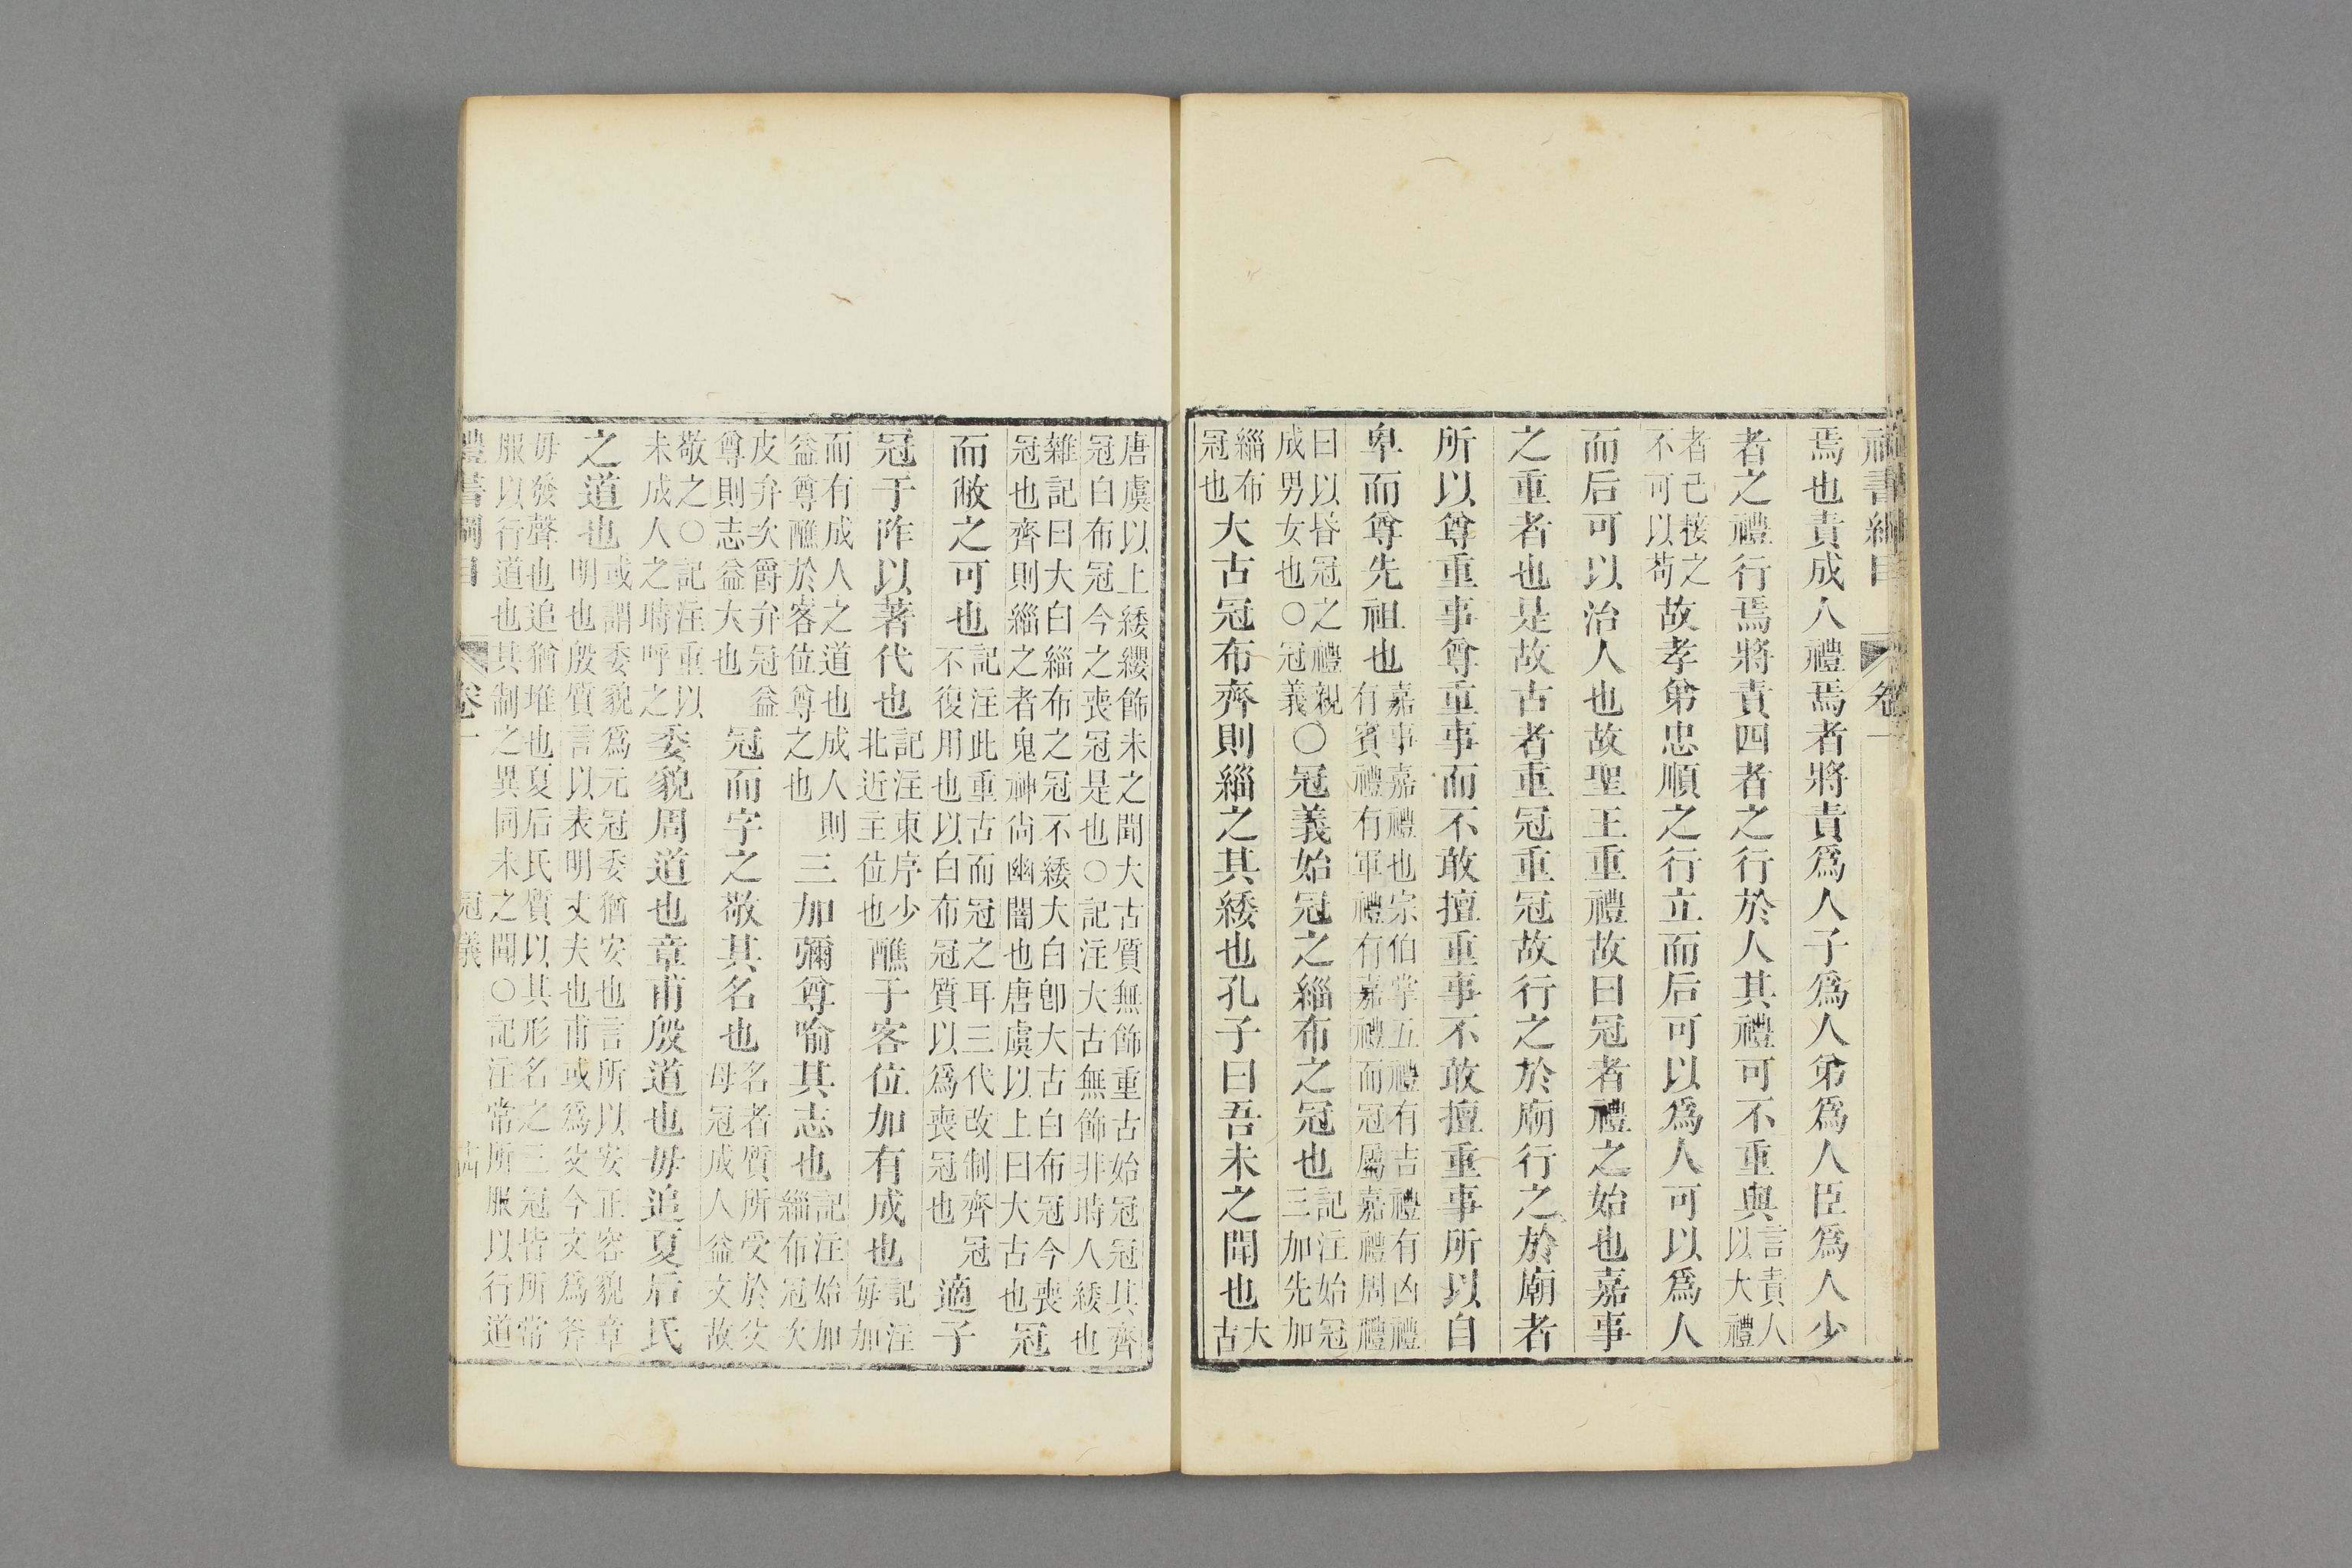 禮書綱目 卷一
焉也責成人禮焉者將責爲人子爲人弟爲人臣爲人少
者之禮行焉將責四者之行於人其禮可不重與言責人以大禮
者己接之不可以苟故孝弟忠順之行立而后可以爲人可以爲人
而后可以治人也故聖王重禮故曰冠者禮之始也嘉事
之重者也是故古者重冠重冠故行之於廟行之於廟者
所以尊重事尊重事而不敢擅重事不敢擅重事所以自
卑而尊先祖也嘉事嘉禮也宗伯掌五禮有吉禮有凶禮有賓禮有軍禮有嘉禮而冠屬嘉禮周禮
曰以昏冠之禮親成男女也○冠義○冠義始冠之緇布之冠也記注始冠三加先加
緇布冠也大古冠布齊則緇之其緌也孔子曰吾未之聞也大古
唐虞以上緌纓飾未之聞大古質無飾重古始冠冠其齊冠白布冠今之喪冠是也○記注大古無飾非時人緌也
雜記曰大白緇布之冠不緌大白卽大古白布冠今喪冠也齊則緇之者鬼神尙幽闇也唐虞以上曰大古也冠
而敝之可也記注此重古而冠之耳三代改制齊冠不復用也以白布冠質以爲喪冠也適子
冠于阼以著代也記注東序少北近主位也醮于客位加有成也記注每加
而有成人之道也成人則益尊醮於客位尊之也三加彌尊喻其志也記注始加緇布冠次
皮弁次爵弁冠益尊則志益大也冠而字之敬其名也名者質所受於父母冠成人益文故
敬之○記注重以未成人之時呼之委貌周道也章甫殷道也毋追夏后氏
之道也或謂委貌爲元冠委猶安也言所以安正容貌章明也殷質言以表明丈夫也甫或爲父今文爲斧
毋發聲也追猶堆也夏后氏質以其形名之三冠皆所常服以行道也其制之異同未之聞○記注常所服以行道
禮書綱目 卷一 冠義